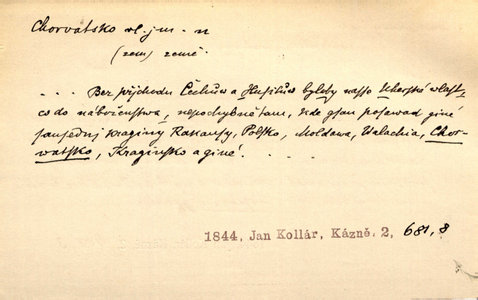 Chorvatsko vl. jm. -a
(zem) země.
. . . Bez příchodu Čechůw a Husitůw byloby nasso Uherské wlast,
co do náboženstwa, nepochybně tam, kde gsau posawad giné
sausední kraginy Rakausy, Polsko, Moldawa, Walachia, Chor-
watsko, Kraginsko a giné. . . . .
1844, Jan Kollár, Kázně. 2, 681, 8